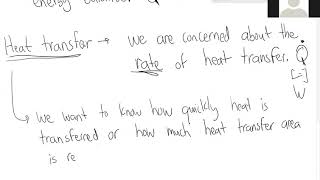 Heat transfer → we are concerned about the
rate of heat transfer. Q̇
[=]
W
we want to know how quickly heat is
transferred or how much heat transfer area
is re